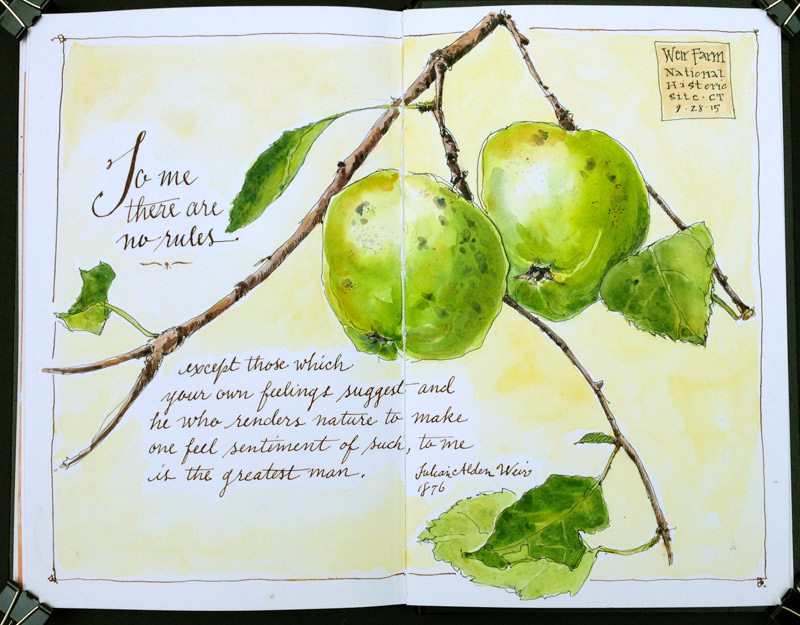 To me
there are
no rules
except those which
your own feelings suggest and
he who renders nature to make
one feel sentiment of such, to me
is the greatest man.
Julian Alden Weir
1876
Weir Farm
National
Historic
Site · CT
9 · 28 · 15